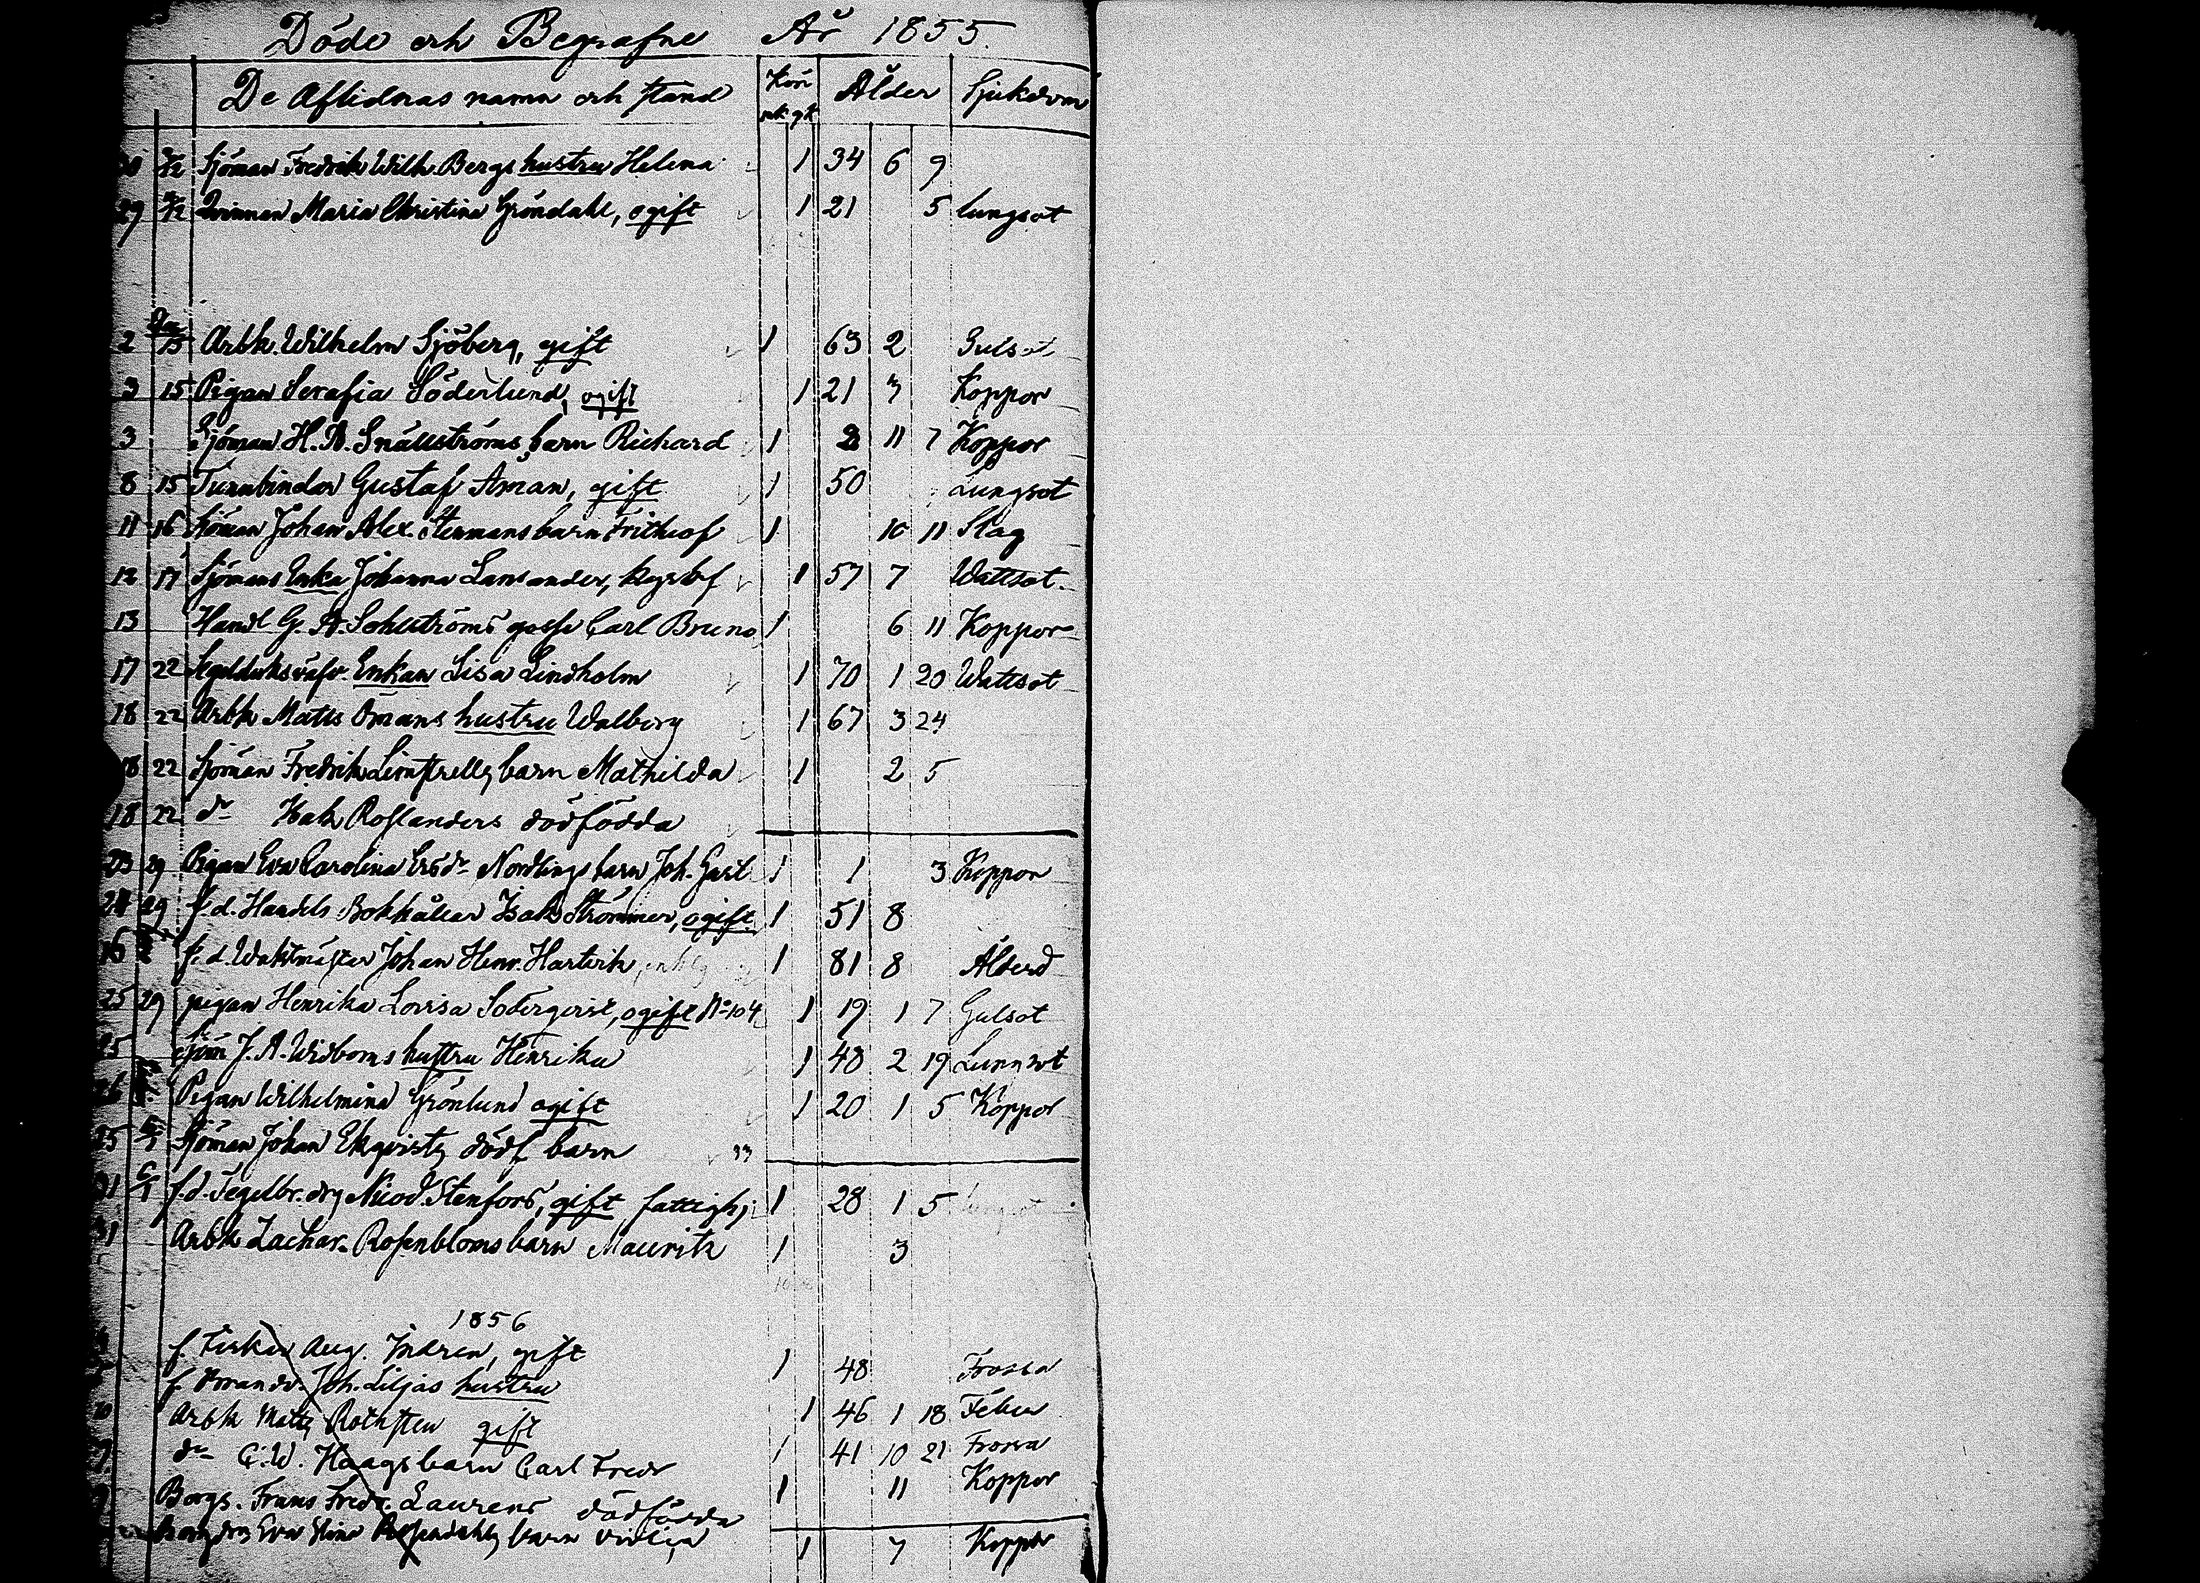 Döde och Begrafne År 1855.
De Aflidnas namn och stånd Kön mk qk Ålder Sjukdom
30 Sjöman Fredrik Wilh. Bergs hustru Helena 1 34 6 9
29 Qvinnan Maria Christina Gröndahl, ogift 1 21 5 lungsot
2 Arbk. Wilhelm Sjöberg, gift 1 63 2 Gulsot
3 15 Pigan Serafia Söderlund, ogift 1 21 Koppor
3 Sjöman H. A. Snällströms barn Richard 1 2 11 7 Koppor
8 15 Tunnbindar Gustaf Åman, gift 1 50 Lungsot
11 16 Sjöman Johan Alex. Stenmans barn Frithiof 1 10 11 Slag
12 17 Sjömans Enka Johanna 1 57 7 Wattsot
13 Handl G. A. Sohlströms gosse Carl Bruno 1 6 11 Koppor
17 22 Enkan Lisa Lindholm 1 70 1 20 Wattsot
18 22 Arbk Matts Ömans hustru Walborg 1 67 3 24
18 22 Sjöman Fredrik barn Mathilda 1 2 5
18 22 do Isak Roslanders dödfödda
23 29 Pigan Eva Carolina Nordlings barn Joh. Gust 1 1 3 Koppor
24 29 f.d. Handels Bokhållar Isak Strömmer, ogift 1 51 8
f.d. Waktmästar Johan Henr. Hartvik 1 81 8 Ålderd
25 29 pigan Henrika Lovisa ogift No 104 1 19 1 7 Gulsot
25 Sjöm J. A. Widboms hustru Henrika 1 48 2 19
26 Pigan Wilhelmina Grönlund ogift 1 20 1 5 Koppor
25 Sjöman Johan Ekqvists dödf barn
31 f.d. Tegelbr. drg Nicod. Stenfors, gift fattighj 1 28 1 5
31 Arbk Zachar. Rosenbloms barn Mauritz 1 3
1856
f. Aug. Indren, gift 1 48 Frossa
f. Joh. Liljas hustru 1 46 1 18 Feber
Arbk Matts Rothsten gift 1 41 10 21 Frossa
do C. W. Haags barn Carl Fredr 1 11 Koppor
Borgs. Frans Fredr. Laurens dödfödda
Eva Stina barn 1 7 Koppor